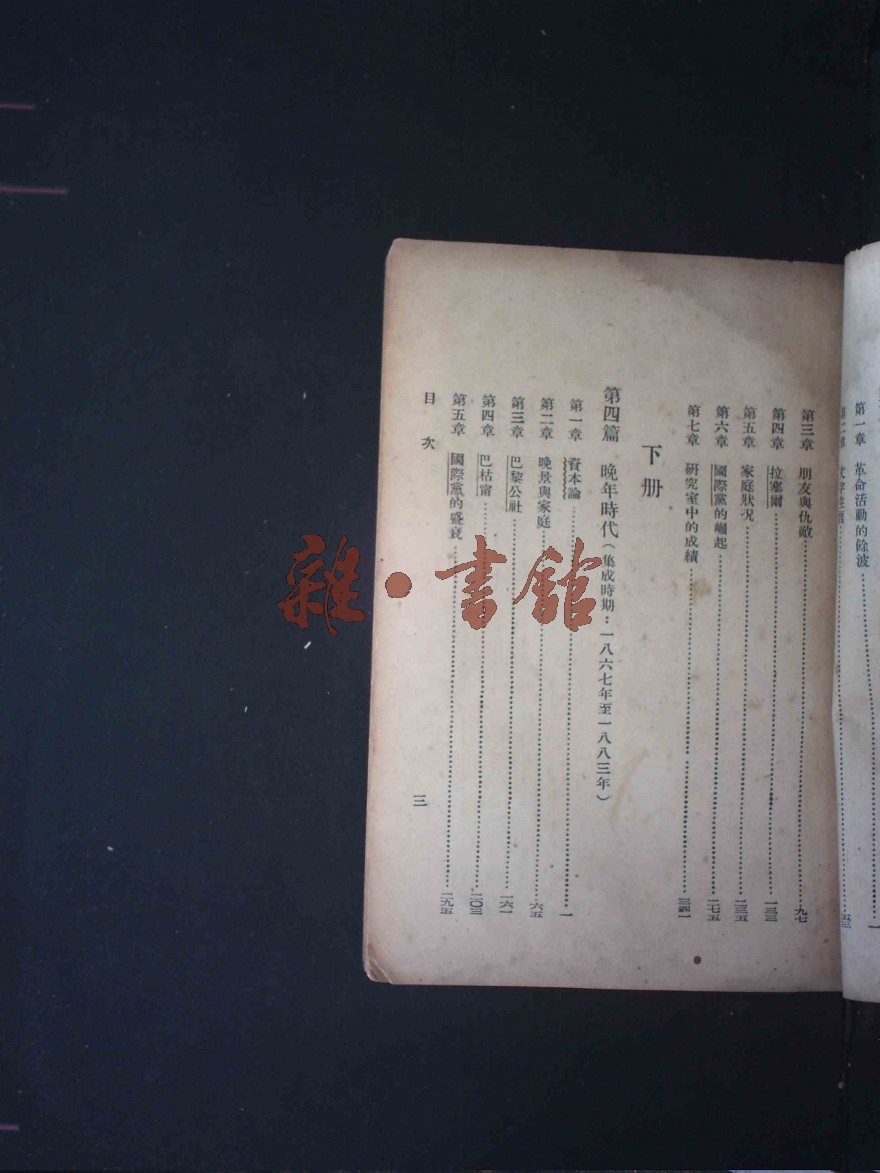 第一章 革命活動的餘波……一
第二章 文字生涯……五三
第三章 朋友與仇敵……九七
第四章 拉塞爾……一三三
第五章 家庭狀況……一三五
第六章 國際黨的崛起……一七五
第七章 研究室中的成績……三四一
下册
第四篇 晚年時代(集成時期:一八六七年至一八八三年)
第一章 資本論……一
第二章 晚景與家庭……六五
第三章 巴黎公社……一六一
第四章 巴枯甯……二〇三
第五章 國際黨的盛衰……二九五
目次
三
雜·書館